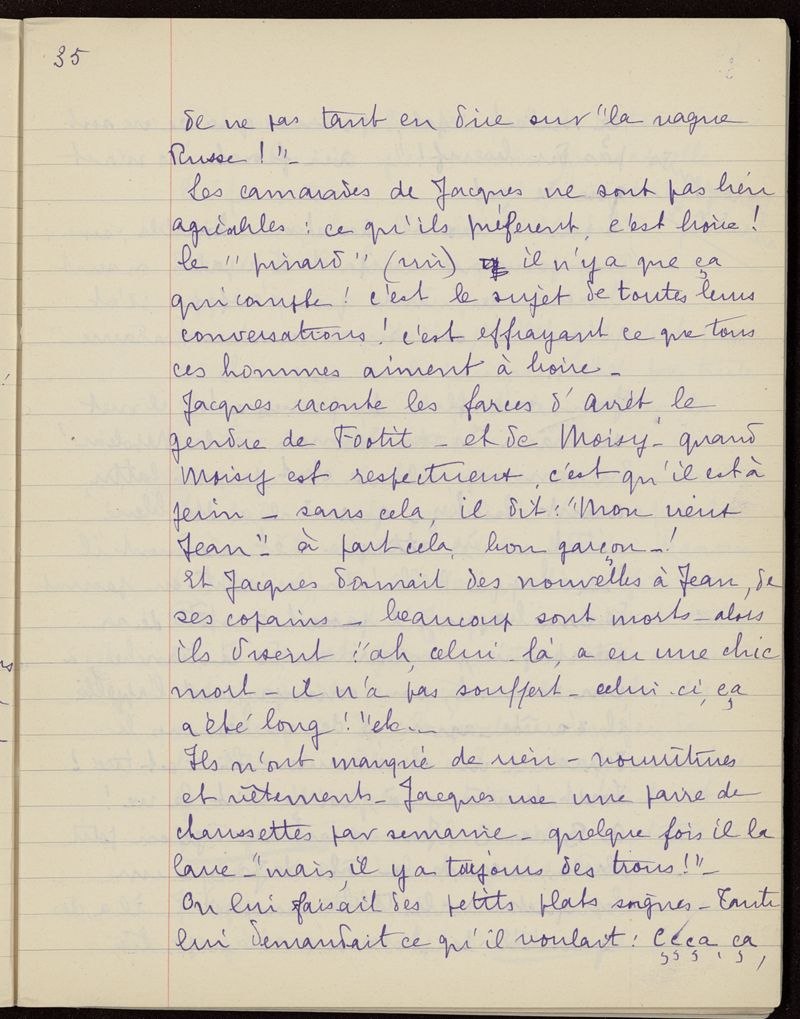 35
de ne pas tant en dire sur "la vague
Russe !" –
Les camarades de Jacques ne sont pas bien
agréables : ce qu'ils préferent, c'est boire !
le "pinard" (vin) il n'y a que ça
qui compte ! c'est le sujet de toutes leurs
conversations ! c'est effrayant ce que tous
ces hommes aiment à boire –
Jacques raconte les farces d'Arrêt le
gendre de Footit – et de Moisy – quand
Moisy est respectueux, c'est qu'il est à
jeun – sans cela, il dit : "Mon vieux
Jean" – à part cela, bon garçon – !
Et Jacques donnait des nouvelles à Jean, de
ses copains – beaucoup sont morts – alors
ils disent : "ah, celui-là, a eu une chic
mort – il n'a pas souffert – celui-ci, ça
a été long !" etc..
Ils n'ont manqué de rien – nourritures
et vêtements – Jacques use une paire de
chaussettes par semaine – quelque fois il la
lave – "mais, il y a toujours des trous !" –
On lui faisait des petits plats soignés – Tante
lui demandait ce qu'il voulait : ça, ça,